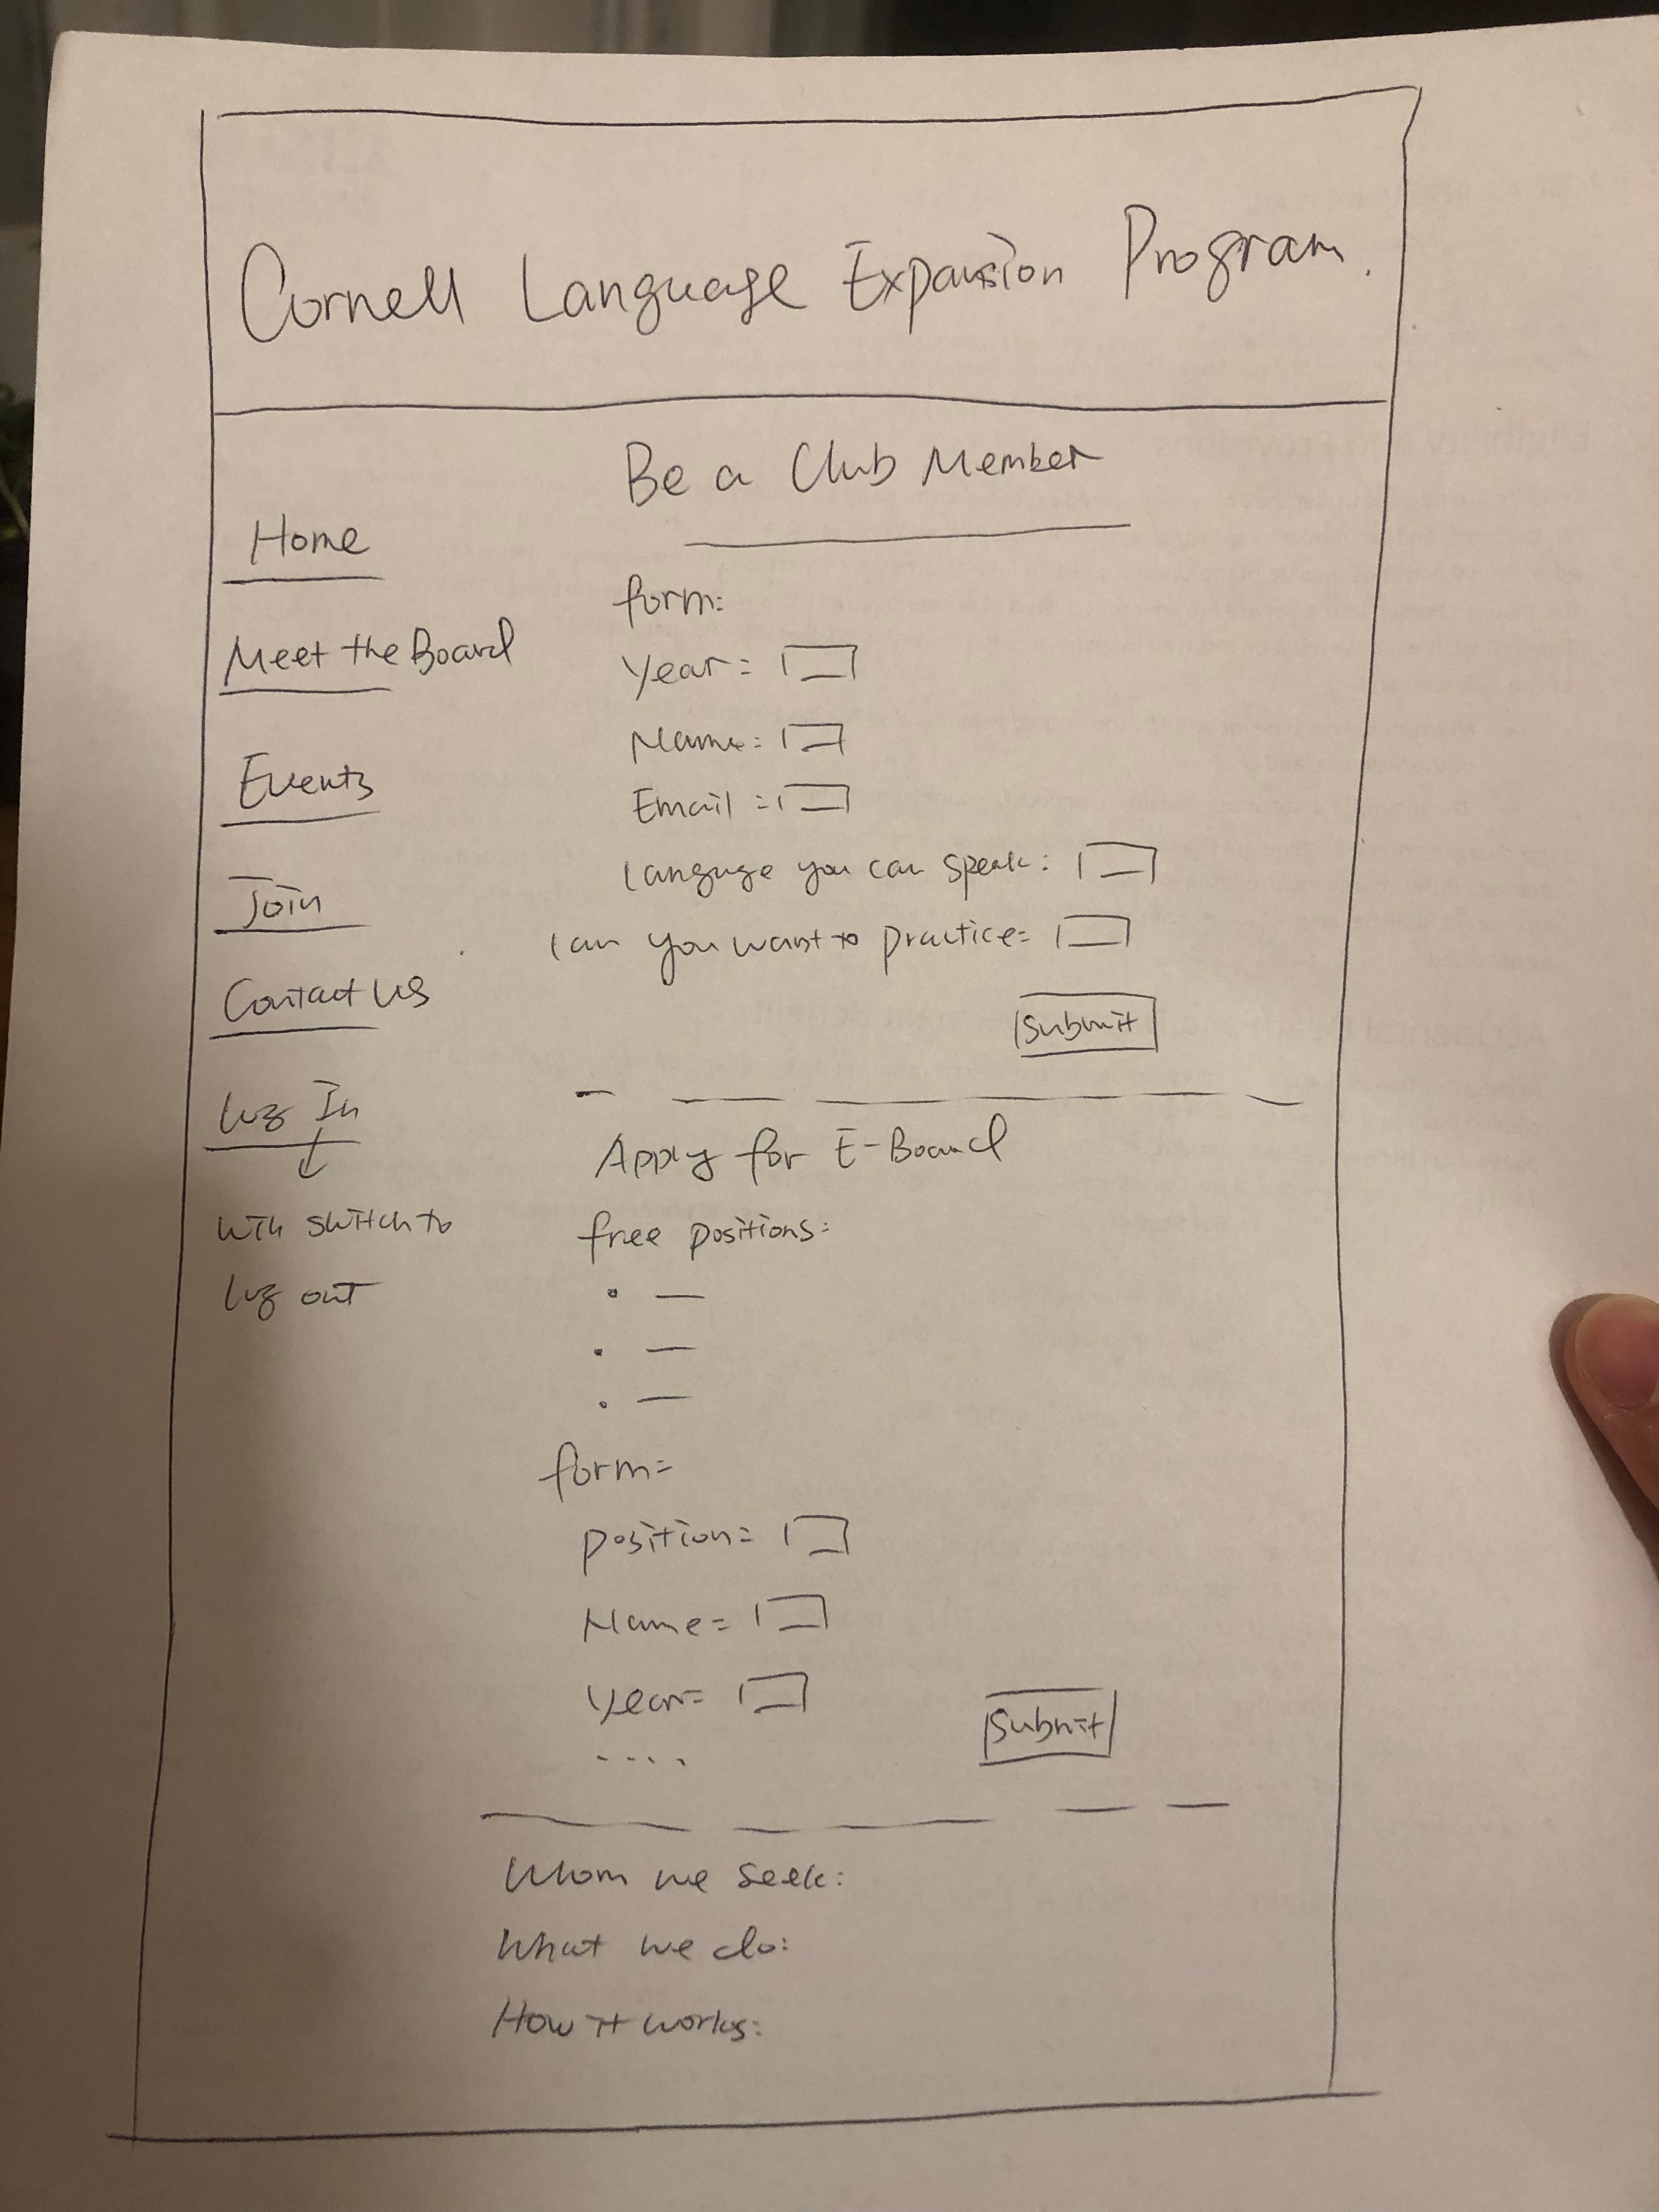 Cornell Language Expansion Program.
Home
Meet the Board
Events
Join
Contact Us
Log In
will switch to
log out
Be a Club Member
form:
Year:
Name:
Email:
language you can speak:
lan you want to practice:
Submit
Apply for E-Board
free positions:
form:
position:
Name:
year:
....
Submit
Whom we seek:
What we do:
How it works: